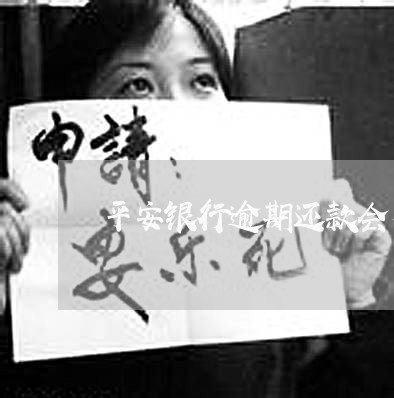 申請：
平安银行逾期还款会
要乐死